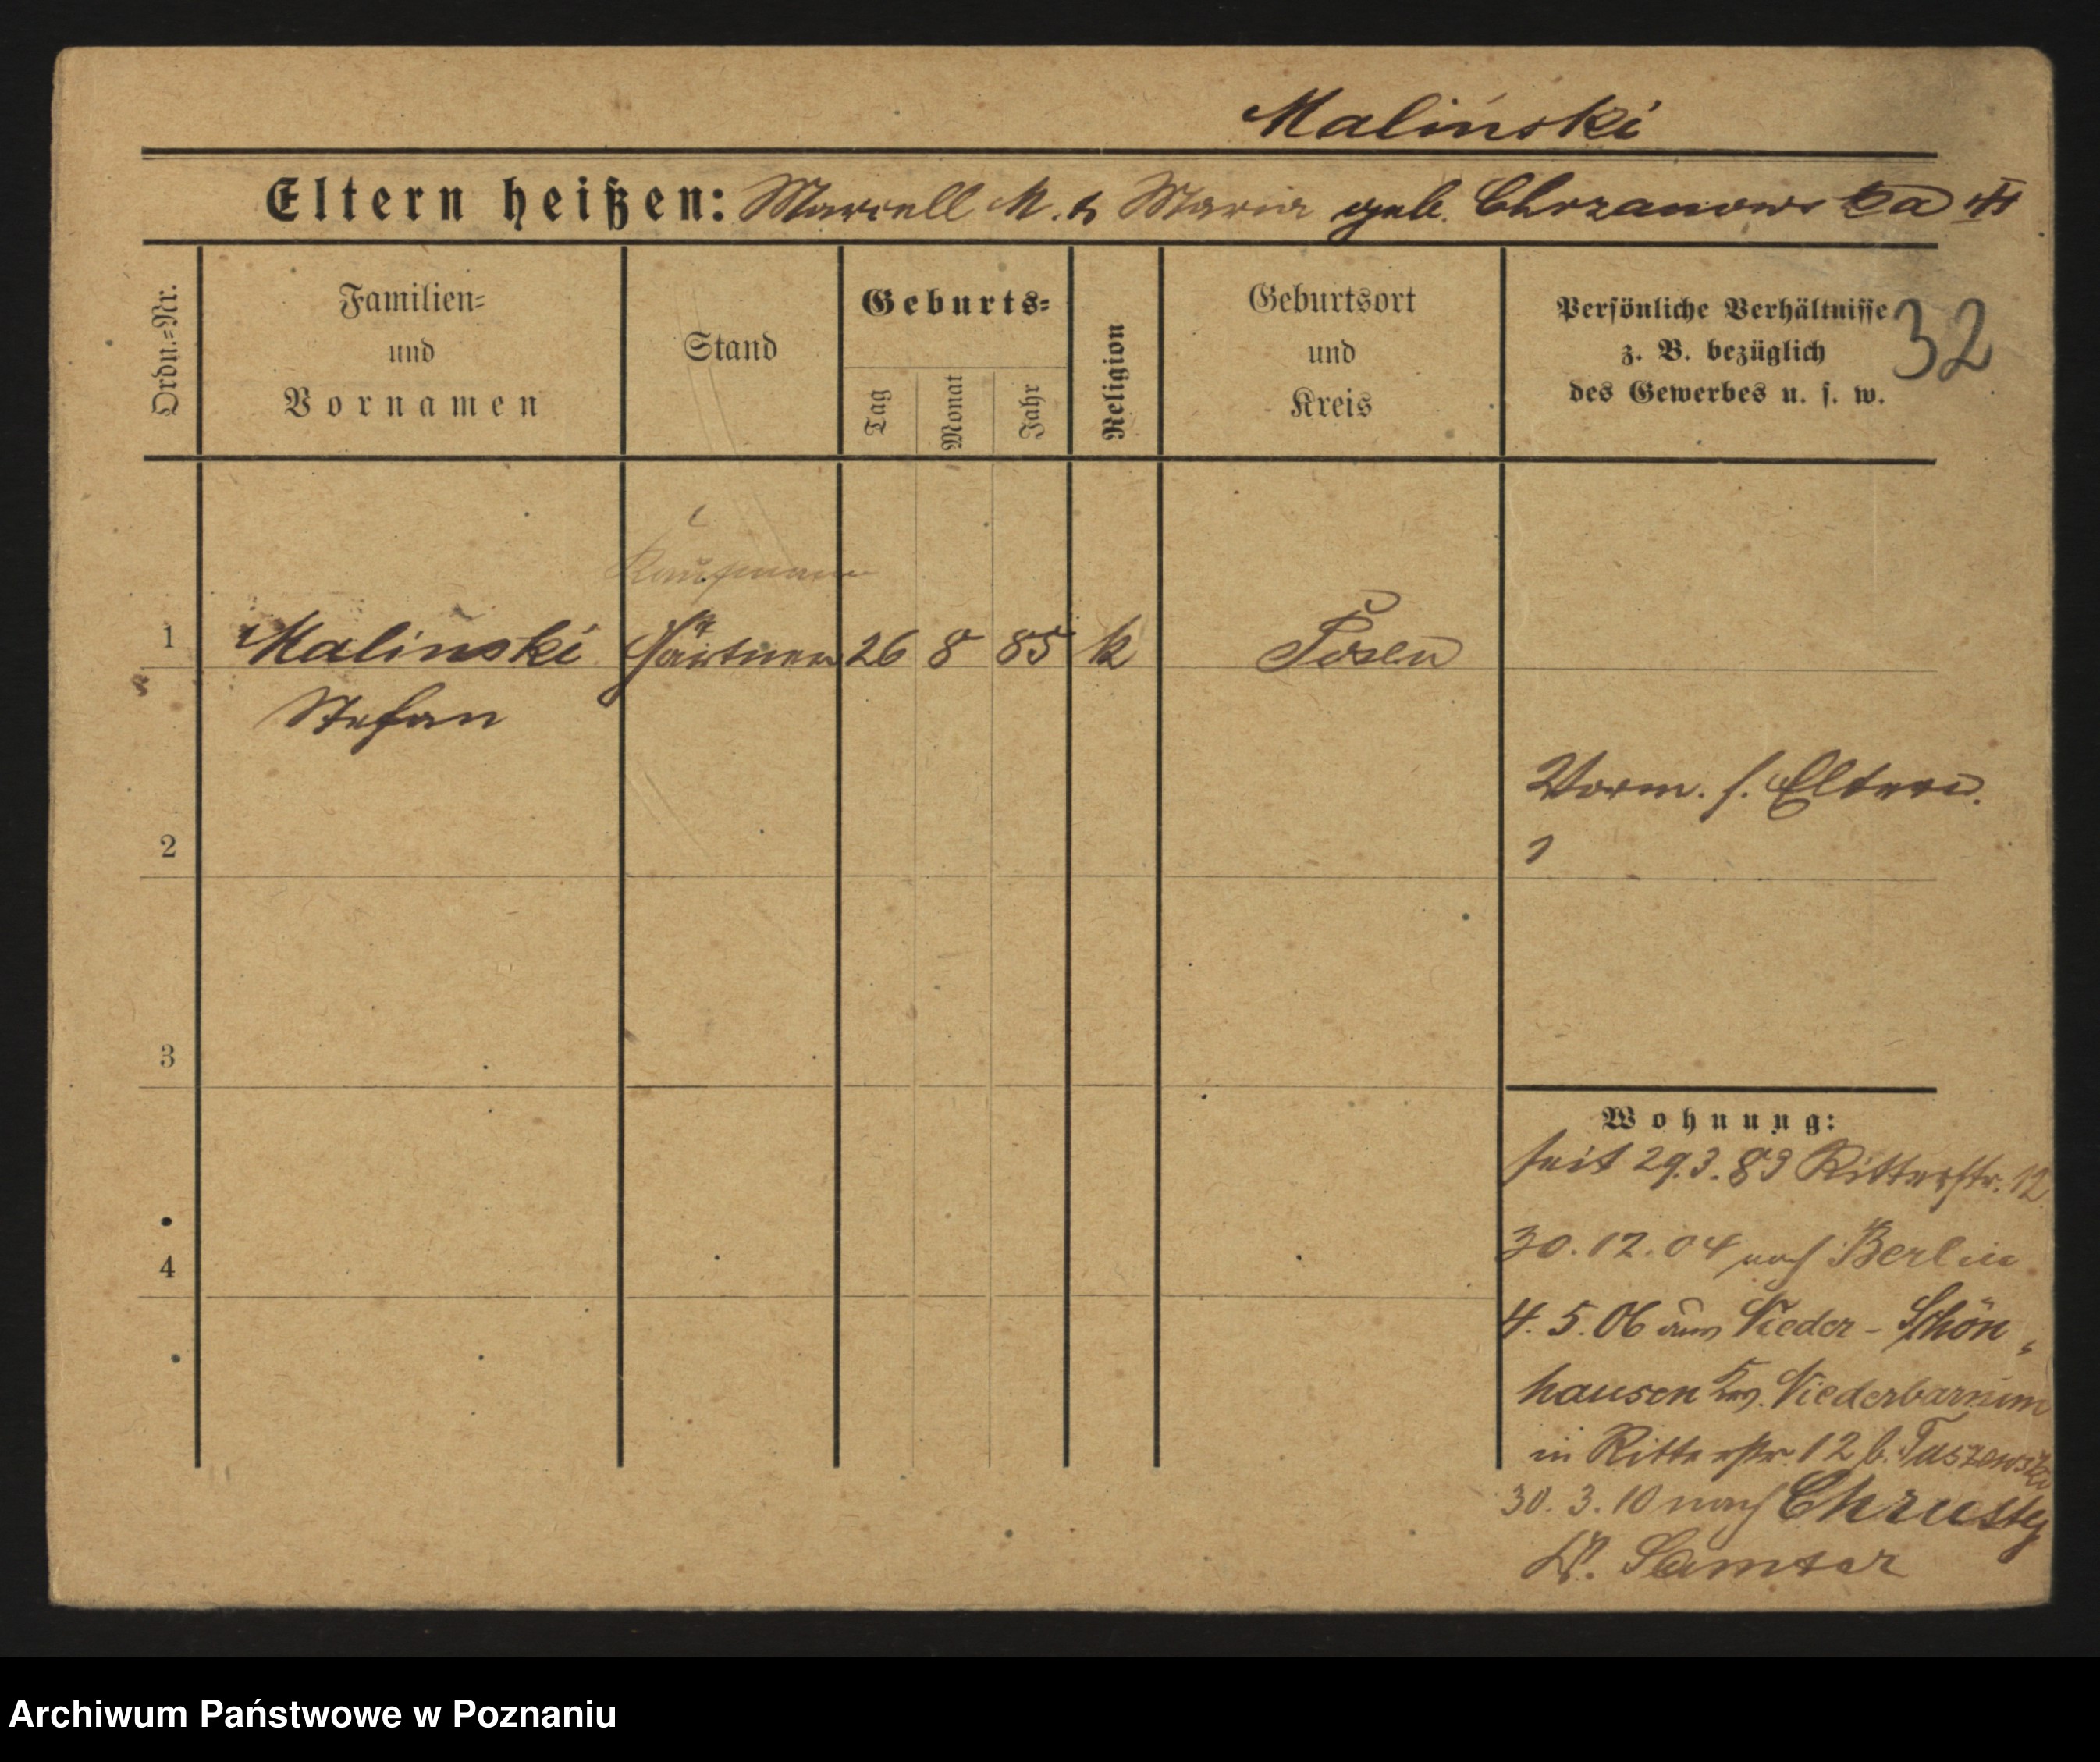 Maliński
Eltern heißen: Marcell M. & Maria geb. Chrzanowska
32
Ordn.-Nr.
Familien-
und
Vornamen
Stand
Geburts-
Tag
Monat
Jahr
Religion
Geburtsort
und
Kreis
Persönliche Verhältnisse
z. B. bezüglich
des Gewerbes u. s. w.
Kaufmann
1 Maliński Gärtner 26 8 85 k Posen
Stefan
Vorm. s. Eltern.
2
3
Wohnung:
seit 29.3.89 Ritterstr. 12
30.12.04 nach Berlin
4
4. 5. 06 aus Nieder-Schön-
hausen Niederbarnim
in Ritterstr. 12 b. Tuszewski
30. 3. 10 nach Chrusty
Kr. Samter
Archiwum Państwowe w Poznaniu